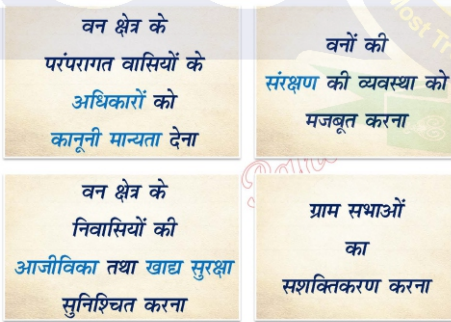 वन क्षेत्र के
परंपरागत वासियों के
अधिकारों को
कानूनी मान्यता देना
वनों की
संरक्षण की व्यवस्था को
मजबूत करना
वन क्षेत्र के
निवासियों की
आजीविका तथा खाद्य सुरक्षा
सुनिश्चित करना
ग्राम सभाओं
का
सशक्तिकरण करना